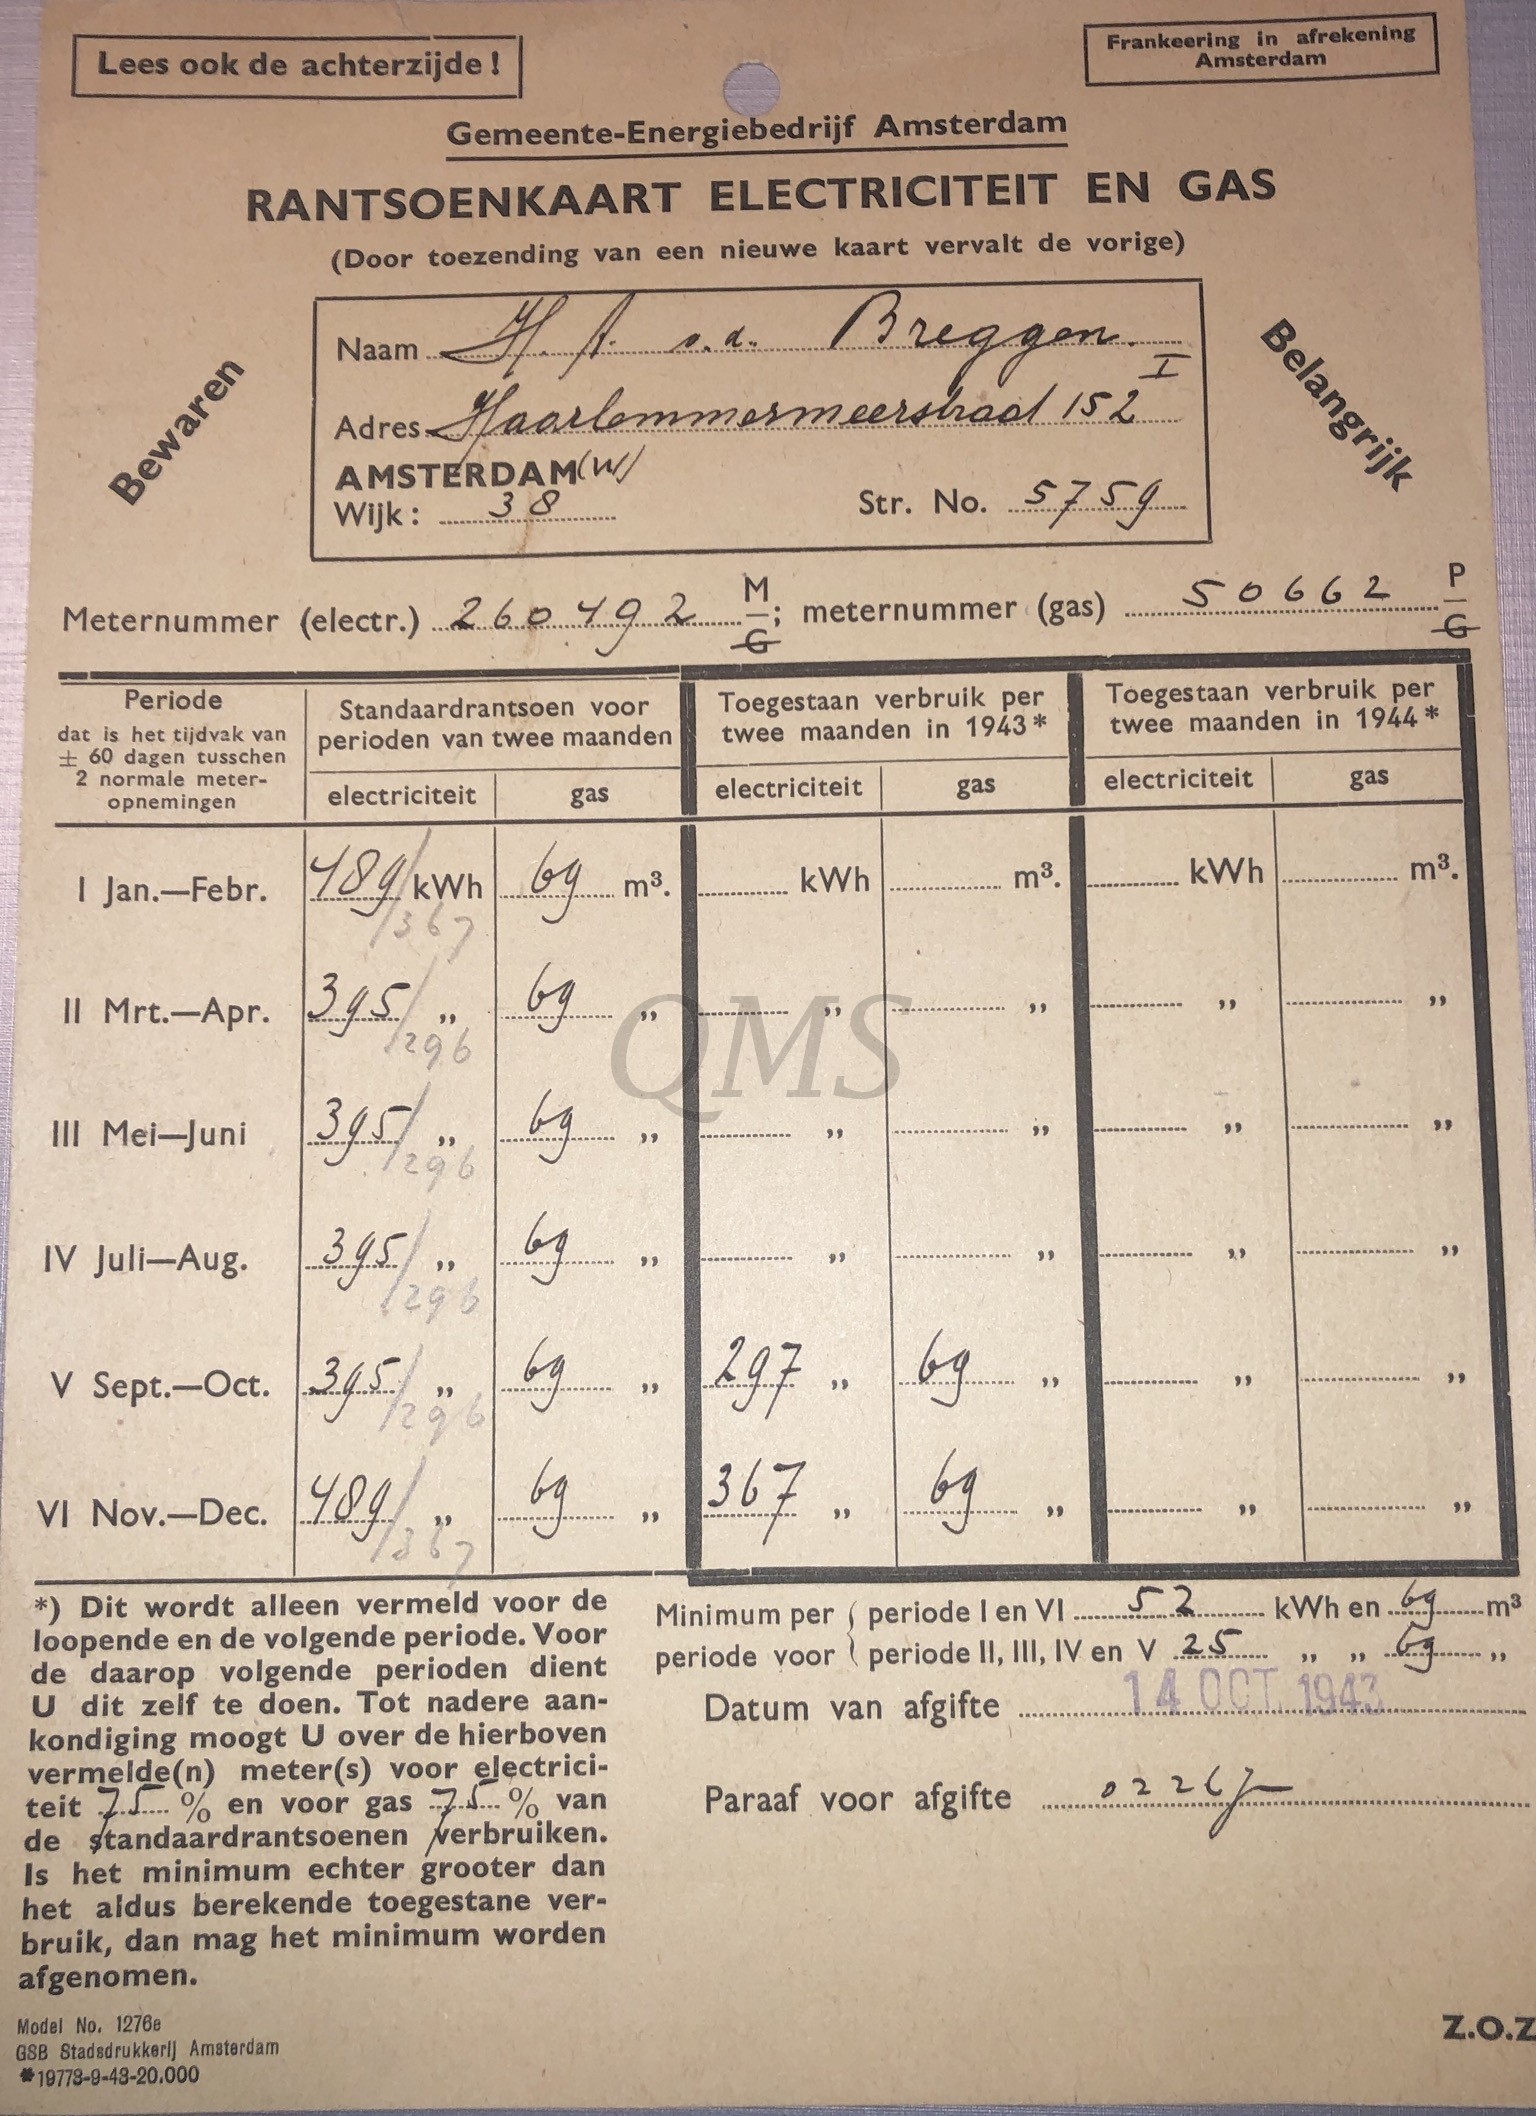 Lees ook de achterzijde !
Frankeering in afrekening
Amsterdam
Gemeente-Energiebedrijf Amsterdam
RANTSOENKAART ELECTRICITEIT EN GAS
(Door toezending van een nieuwe kaart vervalt de vorige)
Bewaren
Belangrijk
Naam H. A. v.d. Breggen.
I
Adres Haarlemmermeerstraat 152
AMSTERDAM (W)
Wijk : 38 Str. No. 5759
Meternummer (electr.) 260492 M/G ; meternummer (gas) 50662 P/G
Periode
dat is het tijdvak van
± 60 dagen tusschen
2 normale meter-
opnemingen
Standaardrantsoen voor
perioden van twee maanden
Toegestaan verbruik per
twee maanden in 1943*
Toegestaan verbruik per
twee maanden in 1944*
electriciteit gas electriciteit gas electriciteit gas
I Jan.—Febr. 489/ kWh 69 m³. kWh m³. kWh m³.
/367
II Mrt.—Apr. 395/ „ 69 „ „ „ „ „
/296
QMS
III Mei—Juni 395/ „ 69 „ „ „ „ „
/296
IV Juli—Aug. 395/ „ 69 „ „ „ „ „
/296
V Sept.—Oct. 395/ „ 69 „ 297 „ 69 „ „ „
/296
VI Nov.—Dec. 489/ „ 69 „ 367 „ 69 „ „ „
/367
*) Dit wordt alleen vermeld voor de
loopende en de volgende periode. Voor
de daarop volgende perioden dient
U dit zelf te doen. Tot nadere aan-
kondiging moogt U over de hierboven
vermelde(n) meter(s) voor electrici-
teit 75 % en voor gas 75 % van
de standaardrantsoenen verbruiken.
Is het minimum echter grooter dan
het aldus berekende toegestane ver-
bruik, dan mag het minimum worden
afgenomen.
Minimum per ( periode I en VI 52 kWh en 69 m³
periode voor ( periode II, III, IV en V 25 „ „ 69 „
Datum van afgifte 14 OCT. 1943
Paraaf voor afgifte 0226
Model No. 1276e
GSB Stadsdrukkerij Amsterdam
*19773-9-43-20.000
Z.O.Z